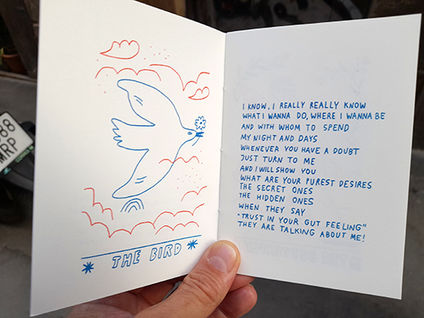 THE BIRD
I KNOW, I REALLY REALLY KNOW
WHAT I WANNA DO, WHERE I WANNA BE
AND WITH WHOM TO SPEND
MY NIGHT AND DAYS
WHENEVER YOU HAVE A DOUBT
JUST TURN TO ME
AND I WILL SHOW YOU
WHAT ARE YOUR PUREST DESIRES
THE SECRET ONES
THE HIDDEN ONES
WHEN THEY SAY
"TRUST IN YOUR GUT FEELING"
THEY ARE TALKING ABOUT ME!